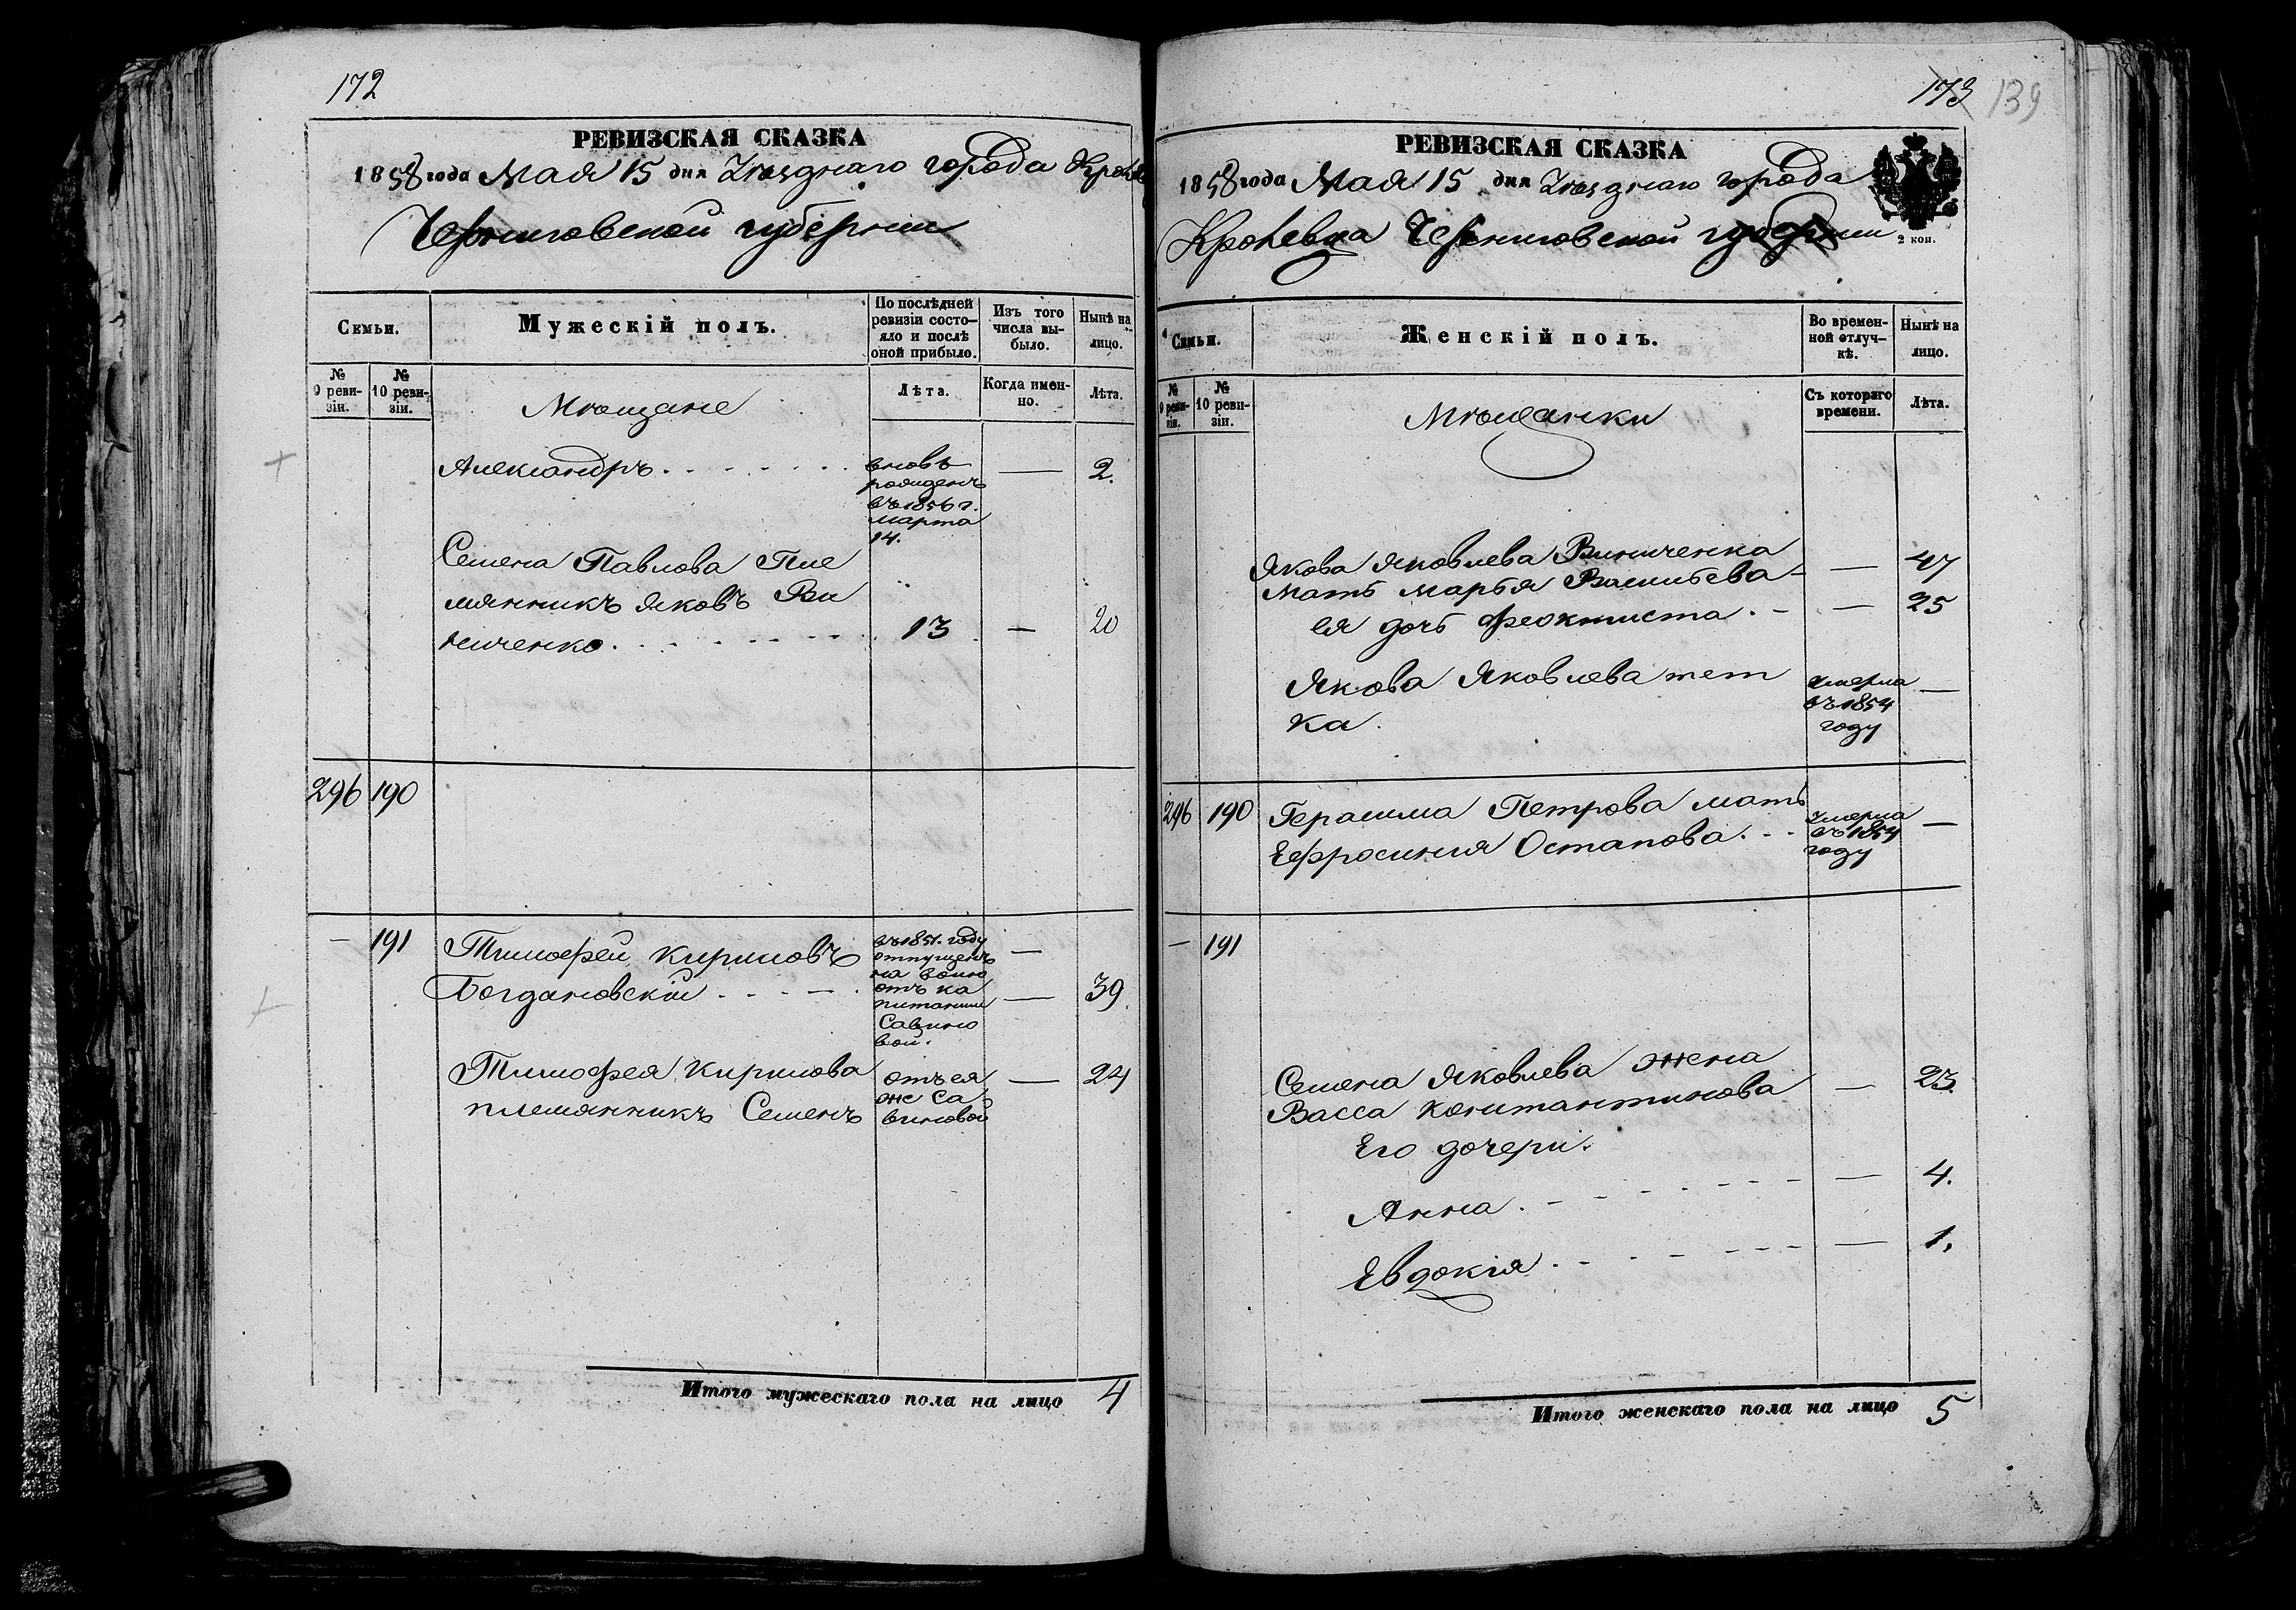 172
РЕВИЗСКАЯ СКАЗКА
1858 года Мая 15 дня Уѣзднаго города
Черниговской губерніи
Семьи.
Мужескій полъ.
По послѣдней
ревизіи состо-
яло и послѣ
оной прибыло.
Изъ того
числа вы-
было.
Нынѣ на
лицо.
№
9 реви-
зіи.
№
10 реви-
зіи.
Мѣщане
Лѣта.
Когда имен-
но.
Лѣта.
Александръ
вновь
рожденъ
въ 1856 г.
марта
14.
— 2.
Семена Павлова Пле
мянникъ Яковъ Ви
ниченко 13 — 20
296 190
— 191 Тимофей Кириловъ
Богдановскій
въ 1851. году
отпущенъ
на волю
отъ ка
питанши
Савино
вой.
—
— 39
Тимофея Кирилова
племянникъ Семенъ
отъ ея
же Са
виновой
— 24
Итого мужескаго пола на лицо 4
173 139
РЕВИЗСКАЯ СКАЗКА
1858 года Мая 15 дня Уѣзднаго города
Кролевца Черниговской губерніи
2 коп.
Семьи.
Женскій полъ.
Во времен-
ной отлуч-
кѣ.
Нынѣ на
лицо.
№
9 реви-
зіи.
№
10 реви-
зіи.
Мѣщанки
Съ котораго
времени.
Лѣта.
Якова Яковлева Виниченка
мать Марья Васильева — 47
ея дочь Феоктиста — 25
Якова Яковлева тет
ка.
умерла
въ 1854
году
—
296 190 Герасима Петрова мать
Ефросинія Остапова
умерла
въ 1854
году
—
— 191
Семена Яковлева жена
Васса Константинова — 23.
Его дочери.
Анна — 4.
Евдокія — 1.
Итого женскаго пола на лицо 5